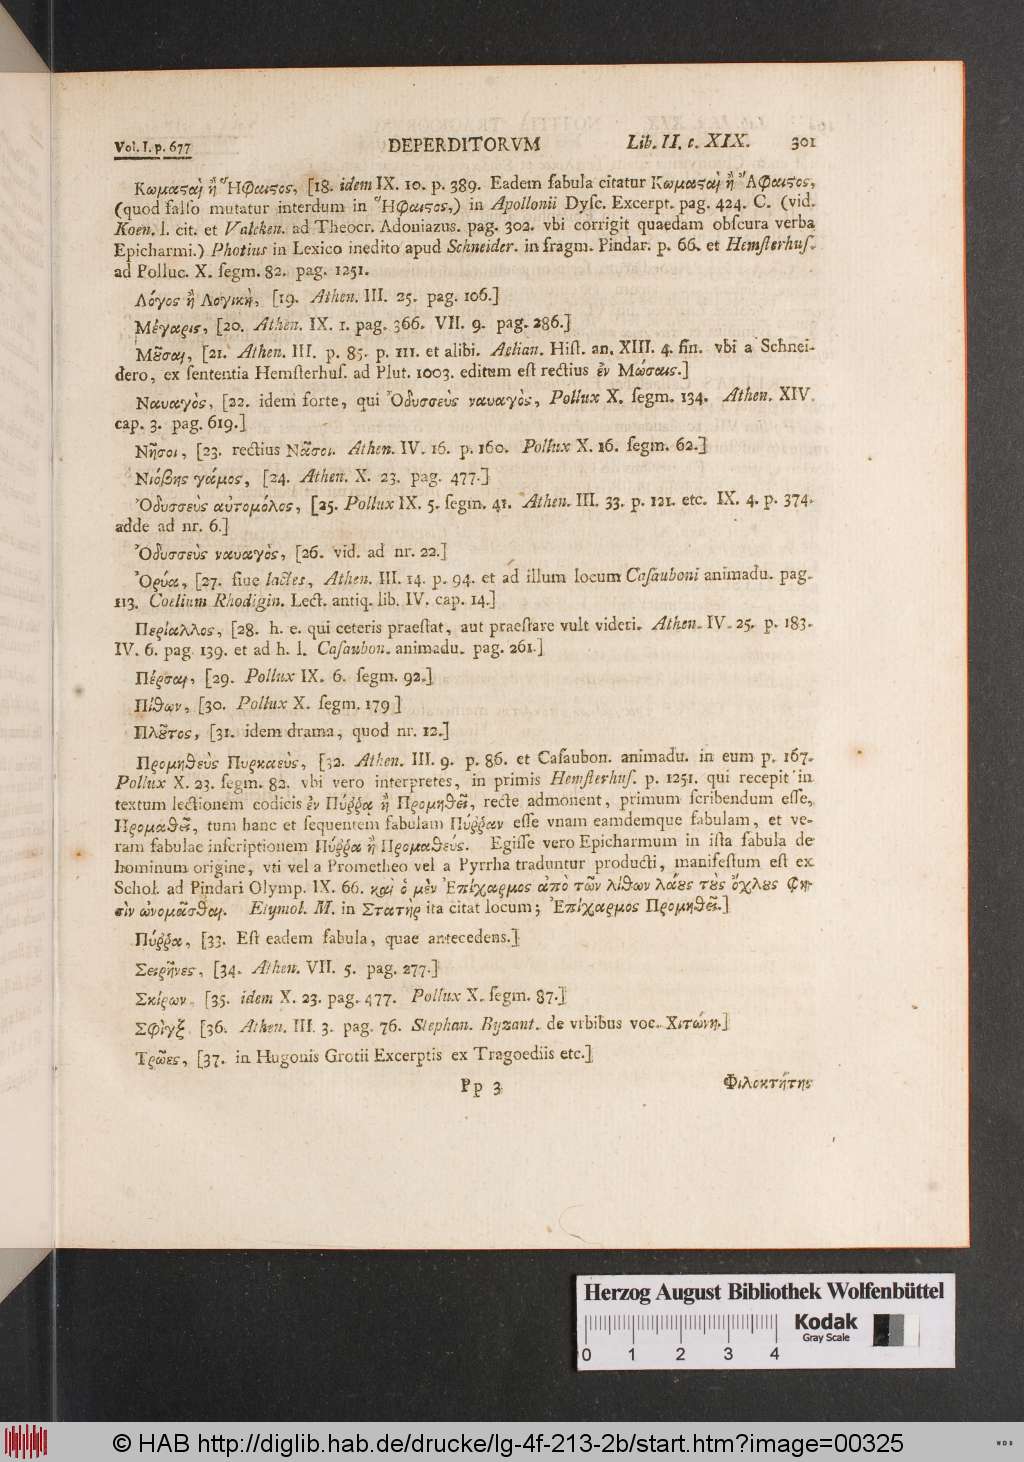 Vol. I. p. 677 DEPERDITORVM Lib. II. c. XIX. 301
Κωμαϛαὶ ἢ Ἥφαιϛος, [18. idem IX. 10. p. 389. Eadem fabula citatur Κωμαϛαὶ ἢ Ἄφαιϛος,
(quod falſo mutatur interdum in Ἥφαιϛος,) in Apollonii Dyſc. Excerpt. pag. 424. C. (vid.
Koen. l. cit. et Valcken. ad Theocr. Adoniazus. pag. 302. vbi corrigit quaedam obſcura verba
Epicharmi.) Photius in Lexico inedito apud Schneider. in fragm. Pindar. p. 66. et Hemſterhuſ.
ad Polluc. X. ſegm. 82. pag. 1251.
Λόγος ἢ Λογικὴ, [19. Athen. III. 25. pag. 106.]
Μέγαρις, [20. Athen. IX. 1. pag. 366. VII. 9. pag. 286.]
Μȣ͂σαι, [21. Athen. III. p. 85. p. 111. et alibi. Aelian. Hiſt. an. XIII. 4. fin. vbi a Schnei-
dero, ex ſententia Hemſterhuſ. ad Plut. 1003. editum eſt rectius ἐν Μώσαις.]
Ναυαγὸς, [22. idem forte, qui Ὀδυσσεὺς ναυαγὸς, Pollux X. ſegm. 134. Athen. XIV.
cap. 3. pag. 619.]
Νῆσοι, [23. rectius Νᾶσοι. Athen. IV. 16. p. 160. Pollux X. 16. ſegm. 62.]
Νιόβης γάμος, [24. Athen. X. 23. pag. 477.]
Ὀδυσσεὺς αὐτομόλος, [25. Pollux IX. 5. ſegm. 41. Athen. III. 33. p. 121. etc. IX. 4. p. 374.
adde ad nr. 6.]
Ὀδυσσεὺς ναυαγὸς, [26. vid. ad nr. 22.]
Ὀρύα, [27. ſiue lactes, Athen. III. 14. p. 94. et ad illum locum Caſauboni animadu. pag.
113. Coelium Rhodigin. Lect. antiq. lib. IV. cap. 14.]
Περίαλλος, [28. h. e. qui ceteris praeſtat, aut praeſtare vult videri. Athen. IV. 25. p. 183.
IV. 6. pag. 139. et ad h. l. Caſaubon. animadu. pag. 261.]
Πέρσαι, [29. Pollux IX. 6. ſegm. 92.]
Πίθων, [30. Pollux X. ſegm. 179]
Πλȣ͂τος, [31. idem drama, quod nr. 12.]
Προμηθεὺς Πυρκαεὺς, [32. Athen. III. 9. p. 86. et Caſaubon. animadu. in eum p. 167.
Pollux X. 23. ſegm. 82. vbi vero interpretes, in primis Hemſterhuſ. p. 1251. qui recepit in
textum lectionem codicis ἐν Πύῤῥᾳ ἢ Προμηθεῖ, recte admonent, primum ſcribendum eſſe,
Προμαθεῖ, tum hanc et ſequentem fabulam Πύῤῥαν eſſe vnam eamdemque fabulam, et ve-
ram fabulae inſcriptionem Πύῤῥα ἢ Προμαθεύς. Egiſſe vero Epicharmum in iſta fabula de
hominum origine, vti vel a Prometheo vel a Pyrrha traduntur producti, manifeſtum eſt ex
Schol. ad Pindari Olymp. IX. 66. καὶ ὁ μὲν Ἐπίχαρμος ἀπὸ τῶν λίθων λάȣς τȣ̀ς ὄχλȣς φη-
σὶν ὠνομᾶσθαι. Etymol. M. in Στατὴρ ita citat locum; Ἐπίχαρμος Προμηθεῖ.]
Πύῤῥα, [33. Eſt eadem fabula, quae antecedens.]
Σειρῆνες, [34. Athen. VII. 5. pag. 277.]
Σκίρων, [35. idem X. 23. pag. 477. Pollux X. ſegm. 87.]
Σφὶγξ [36. Athen. III. 3. pag. 76. Stephan. Byzant. de vrbibus voc. Χιτώνη.]
Τρῶες, [37. in Hugonis Grotii Excerptis ex Tragoediis etc.]
Pp 3 Φιλοκτήτης
Herzog August Bibliothek Wolfenbüttel
Kodak
Gray Scale
0 1 2 3 4
© HAB http://diglib.hab.de/drucke/lg-4f-213-2b/start.htm?image=00325